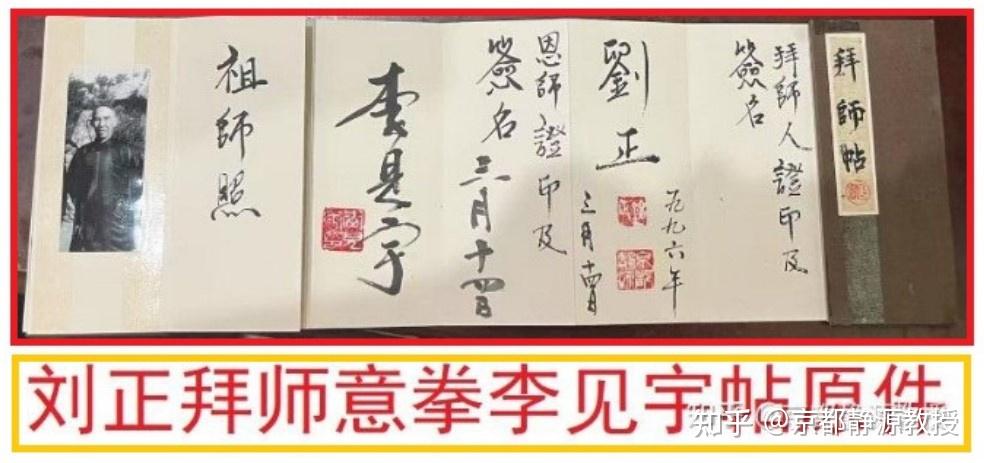 拜師帖
拜師人證印及
簽名
一九九六年
劉正
三月十四日
恩師證印及
簽名
三月十四日
李見宇
祖師照
刘正拜师意拳李见宇帖原件
知乎 @京都静源教授